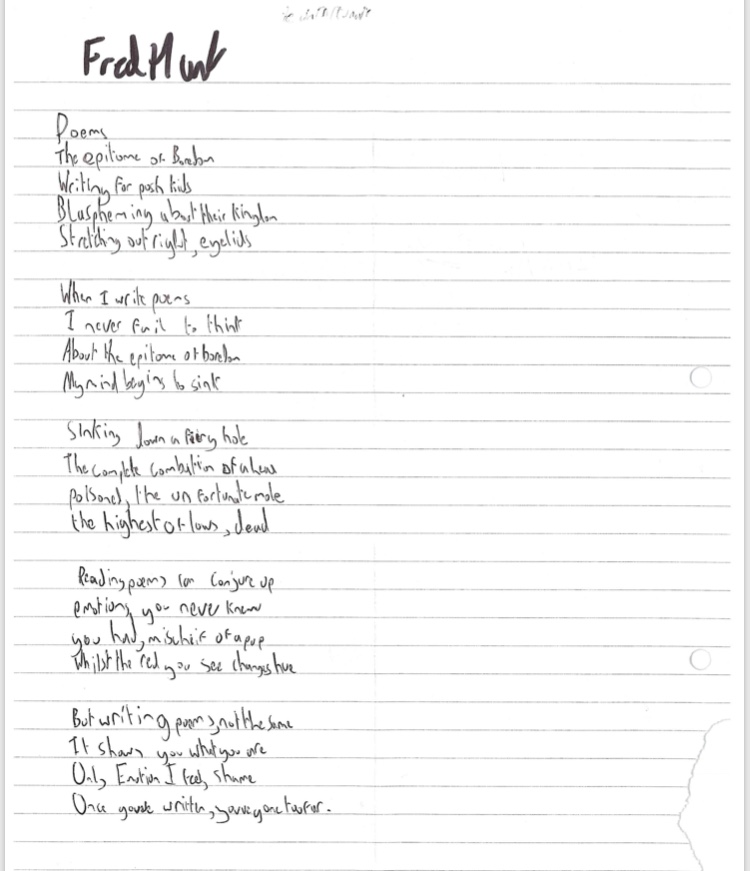 Fred Hunt
Poems
The epitome of Boredom
Writing for posh kids
Blaspheming about their kingdom
Stretching out right, eyelids
When I write poems
I never fail to think
About the epitome of boredom
My mind begins to sink
Sinking down a fiery hole
The complete combustion of a head
poisoned, like an unfortunate mole
the highest of lows, dead
Reading poems can conjure up
emotions you never knew
you had, mischeif of a pup
Whilst the red you see changes hue
But writing poems, not the same
It shows you what you are
Only Emotion I feel, shame
Once youve written, youve gone too far.